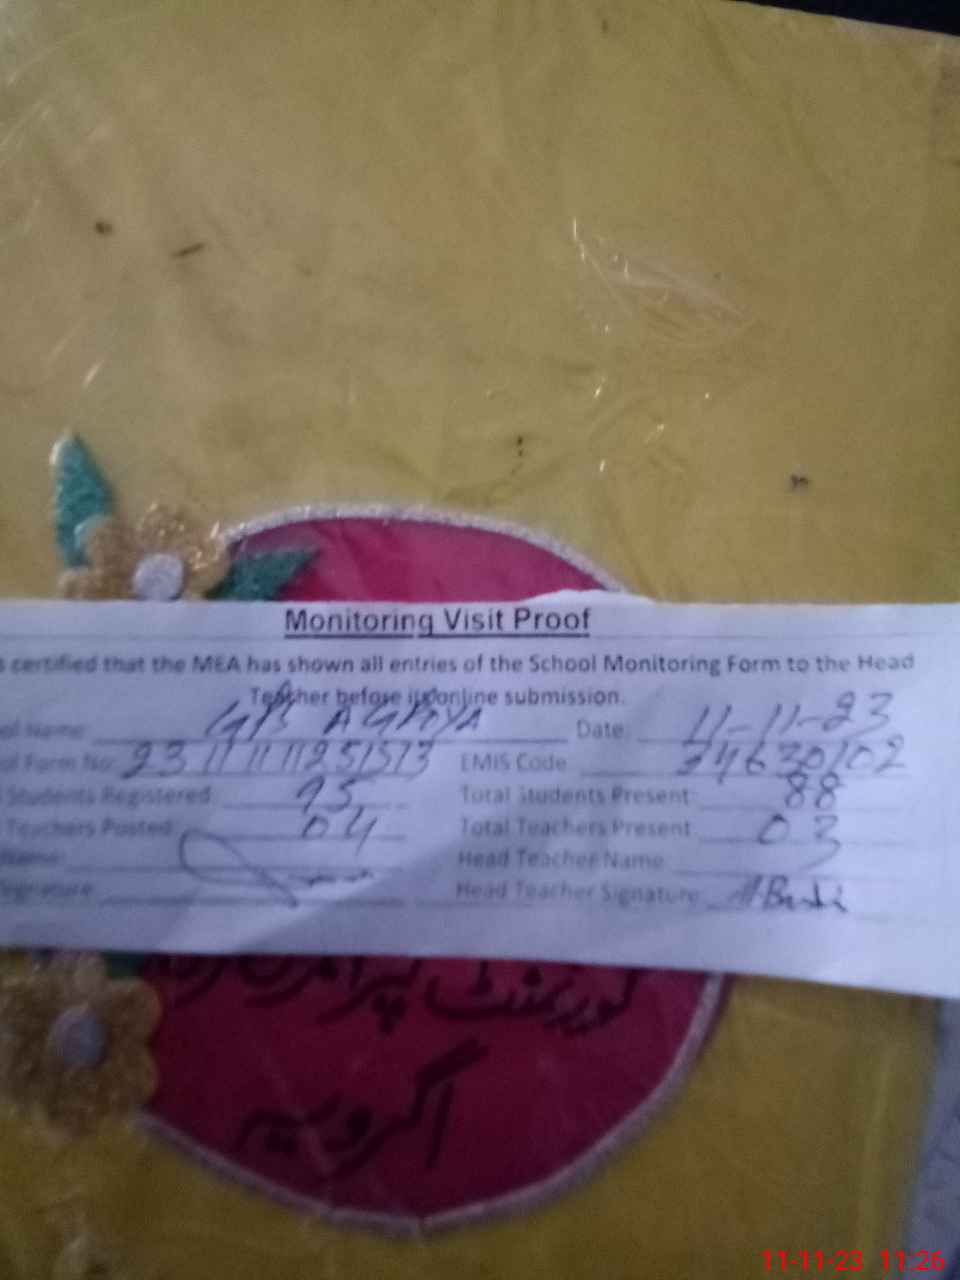 Monitoring Visit Proof
s certified that the MEA has shown all entries of the School Monitoring Form to the Head
Teacher before its online submission.
ol Name: GPS AGROYA Date: 11-11-23
ol Form No: 23111111251513 EMIS Code 34630102
Students Registered: 95 Total Students Present: 88
Teachers Posted: 04 Total Teachers Present 03
Name: Head Teacher Name
Signature Head Teacher Signature
گورنمنٹ پرائمری
اگرویہ
11-11-23 11:26